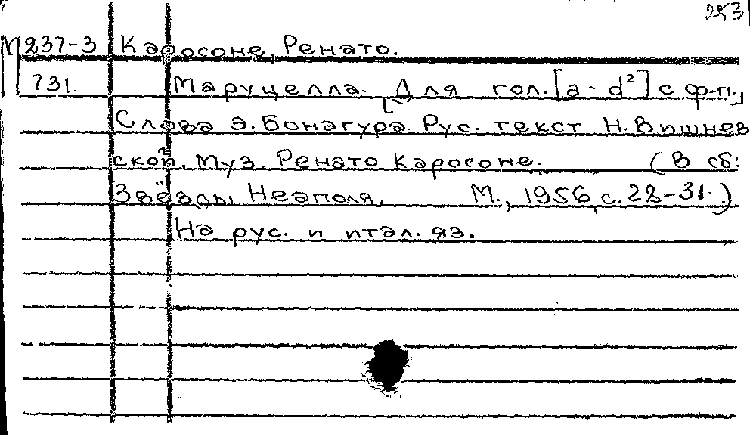 253
М237-3 Каросоне, Ренато.
731. Маруцелла. Для гол. [a - d²] с ф-п.,
Слова Э. Бонагура. Рус. текст Н. Вишнев
ской. Муз. Ренато Каросоне. (В сб:
Звёзды Неаполя. М., 1956, с. 28-31.)
На рус. и итал. яз.